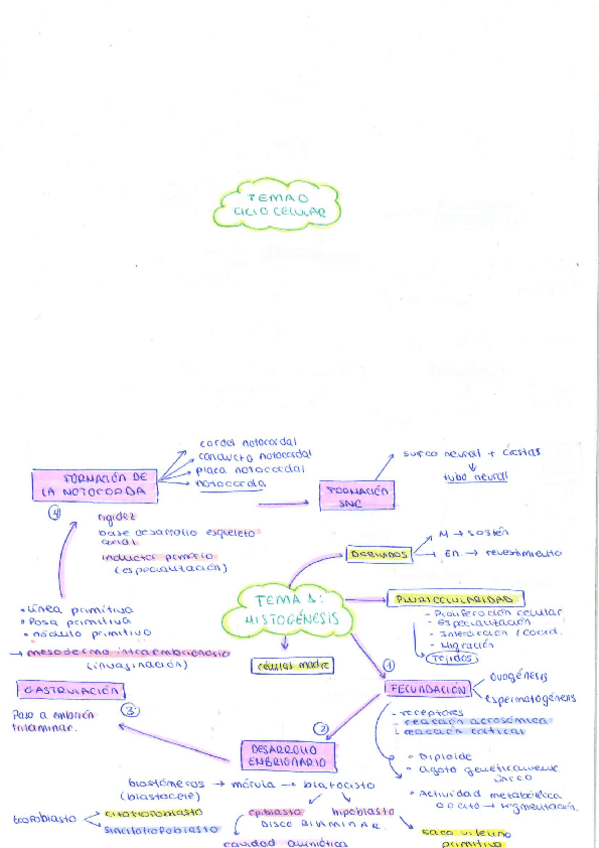 TEMA 0
CICLO CELULAR
cordel notocordal
conducto notocordal
placa notocordal
notocorda
FORMACIÓN DE
LA NOTOCORDA
surco neural + crestas
tubo neural
FORMACIÓN
SNC
④
rigidez
base desarrollo esqueleto
axial
inductor primario
(especialización)
DERIVADOS
M → sostén
EN. → revestimiento
TEMA 1:
HISTOGÉNESIS
PLURICELULARIDAD
- Proliferación celular
- especialización
- Interacción / coord.
- Migración
Tejidos
• línea primitiva
• Fosa primitiva
• nódulo primitivo
→ mesodermo intraembrionario
(invaginación)
células madre
①
FECUNDACIÓN
ovogénesis
espermatogénesis
GASTRULACIÓN
③
Paso a embrión
trilaminar.
②
- receptores
- reacción acrosómica
- reacción cortical
DESARROLLO
EMBRIONARIO
• Diploide
• Agoto genéticamente
único
• Actividad metabólica
ovocito → segmentación.
blastómeros → mórula → blastocisto
(blastocele)
trofoblasto
citotrofoblasto
sincitiotrofoblasto
epiblasto
hipoblasto
DISCO BILAMINAR
cavidad amniótica
saco vitelino
primitivo